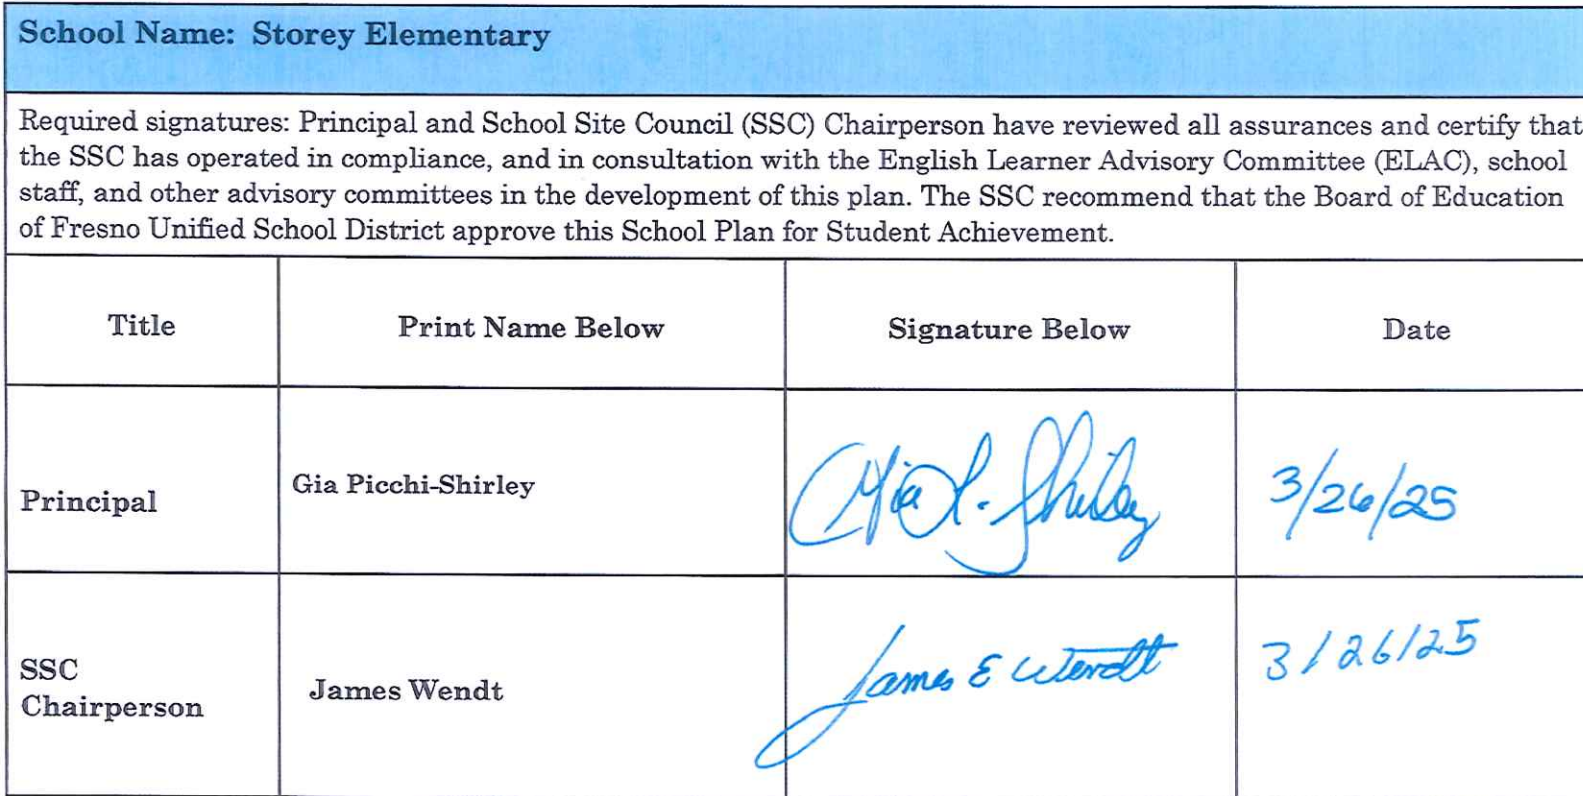 School Name: Storey Elementary
Required signatures: Principal and School Site Council (SSC) Chairperson have reviewed all assurances and certify that
the SSC has operated in compliance, and in consultation with the English Learner Advisory Committee (ELAC), school
staff, and other advisory committees in the development of this plan. The SSC recommend that the Board of Education
of Fresno Unified School District approve this School Plan for Student Achievement.
Title Print Name Below Signature Below Date
Principal Gia Picchi-Shirley Gia P. Shirley 3/26/25
SSC
Chairperson James Wendt James E Wendt 3/26/25